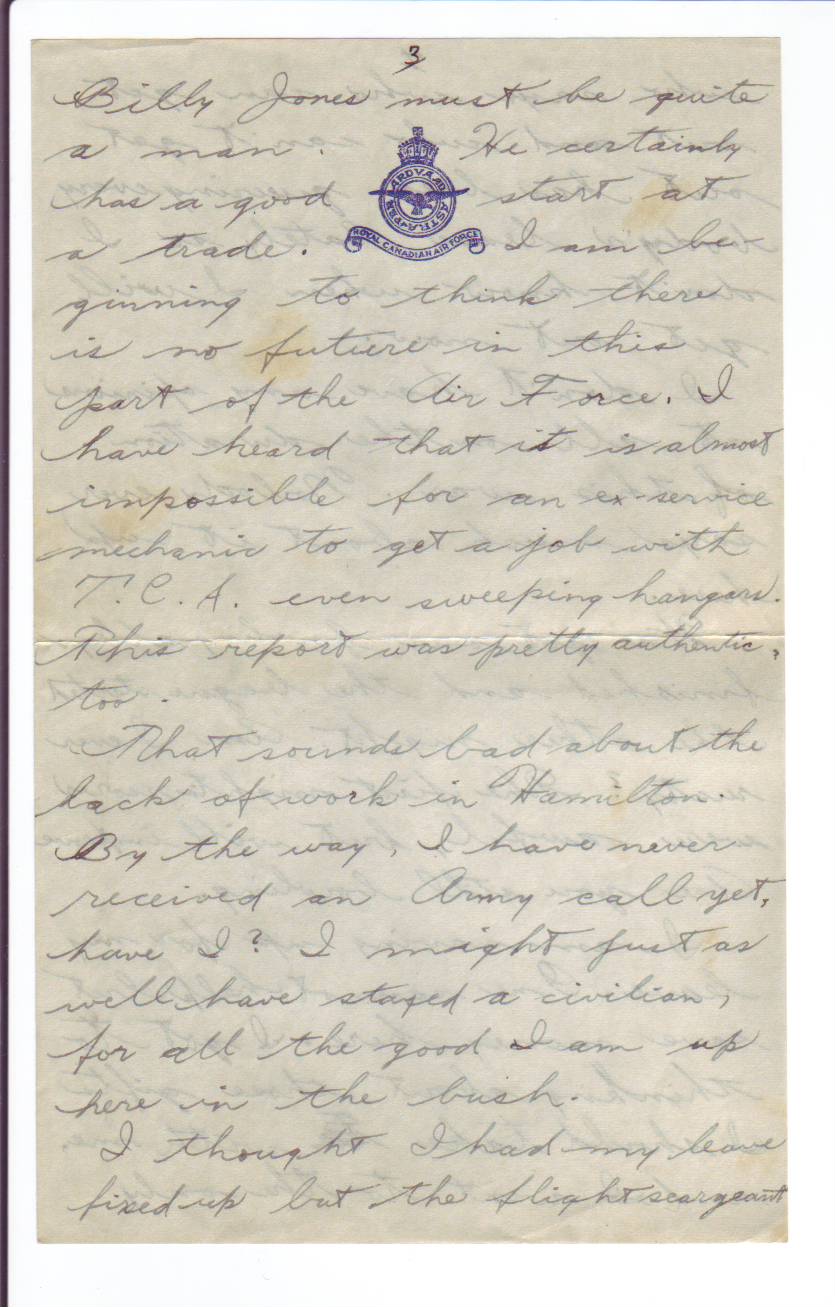 3
Billy Jones must be quite
a man. He certainly
has a good start at
a trade. I am be
ginning to think there
is no future in this
part of the Air Force. I
have heard that it is almost
impossible for an ex-service
mechanic to get a job with
T.C.A. even sweeping hangars.
This report was pretty authentic,
too.
That sounds bad about the
lack of work in Hamilton.
By the way, I have never
received an Army call yet,
have I? I might just as
well have stayed a civilian,
for all the good I am up
here in the bush.
I thought I had my leave
fixed up but the flight seargeant
PER ARDVA AD ASTRA
ROYAL CANADIAN AIR FORCE